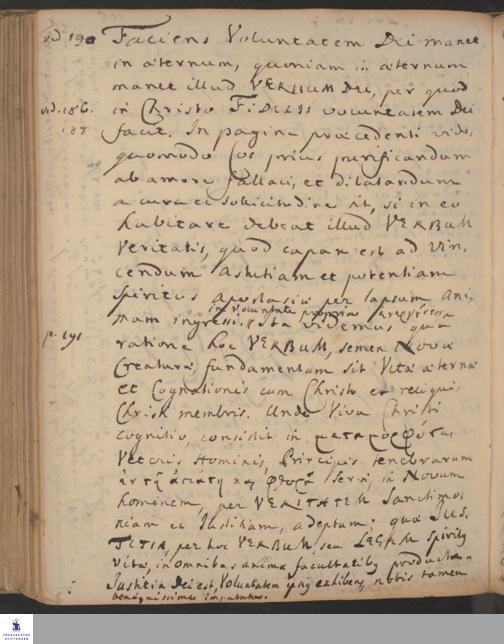 vid 190 Faciens Voluntatem Dei manet
in æternum, quoniam in æternum
manet illud VERBUM DEI, per quod
vid. 186. in Christo FIDELES voluntatem Dei
187 facit. In pagina præcedenti vide,
quomodo Cos prius purificandum
ab amore fallaci, et dilatandum
a cura et sollicitudine sit, si in eo
habitare debeat illud VERBUM
Veritatis, quod capax est ad vin-
cendum astutiam et potentiam
Spiritus Apostasiæ per lapsum Ani-
in voluntate propria
mam ingressi. Ista videmus qua
p. 191 ratione hoc VERBUM, semen Novæ
Creaturæ, fundamentum sit Vitæ æternæ
et Cognationis cum Christo et reliquis
Christi membris. Unde Viva Christi
cognitio, consistit in
Veteris Hominis, Principis tenebrarum
Servi, in Novum
hominem, per VERITATEM Sanctimo-
niam et Justitiam, adeptum; quæ JUS-
TITIA, per hoc VERBUM, seu LEGEM Spiritus
Vitæ, in omnibus animæ facultatibus producta,
Justitia Dei est, Voluntatem ipsius exhibens, nobis tamen
benignissime imputatur.
FRANCKESCHE
STIFTUNGEN